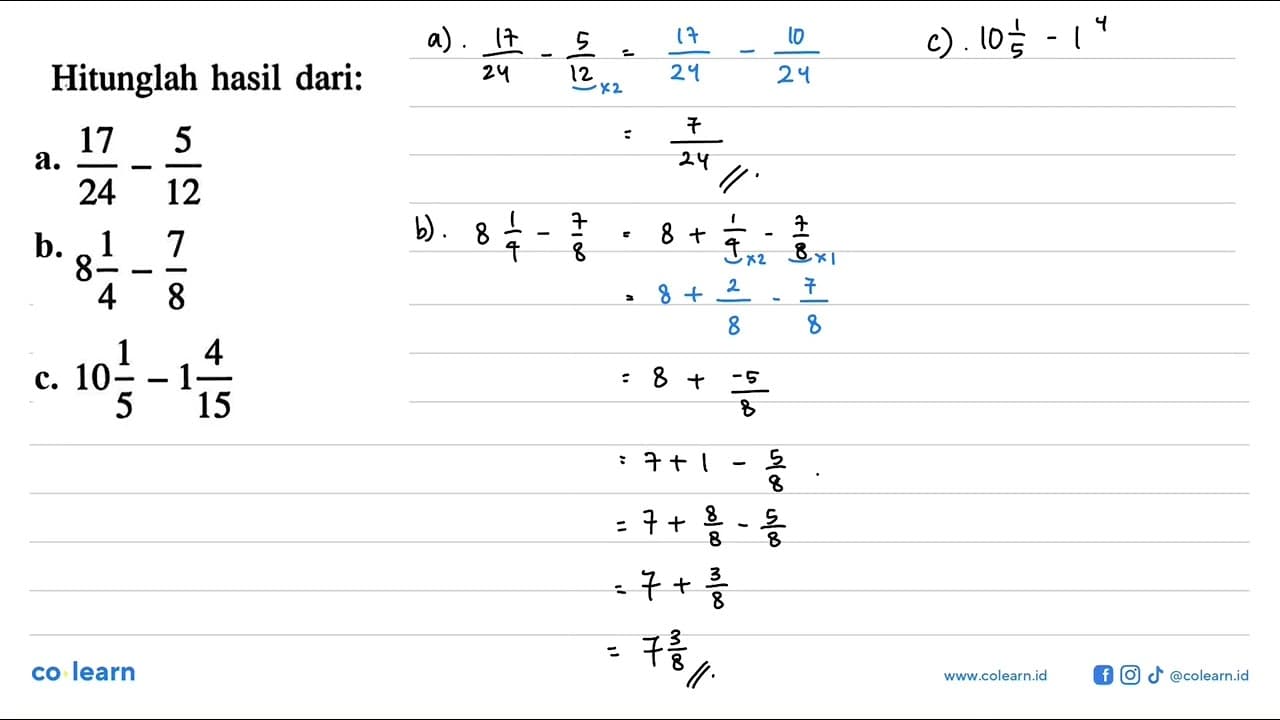 Hitunglah hasil dari:
a. 17/24 - 5/12
b. 8 1/4 - 7/8
c. 10 1/5 - 1 4/15
a). 17/24 - 5/12 = 17/24 - 10/24
×2
= 7/24 //.
b). 8 1/4 - 7/8 = 8 + 1/4 - 7/8
×2 ×1
= 8 + 2/8 - 7/8
= 8 + -5/8
= 7 + 1 - 5/8 .
= 7 + 8/8 - 5/8
= 7 + 3/8
= 7 3/8 //.
c). 10 1/5 - 1 4
co learn
www.colearn.id
@colearn.id